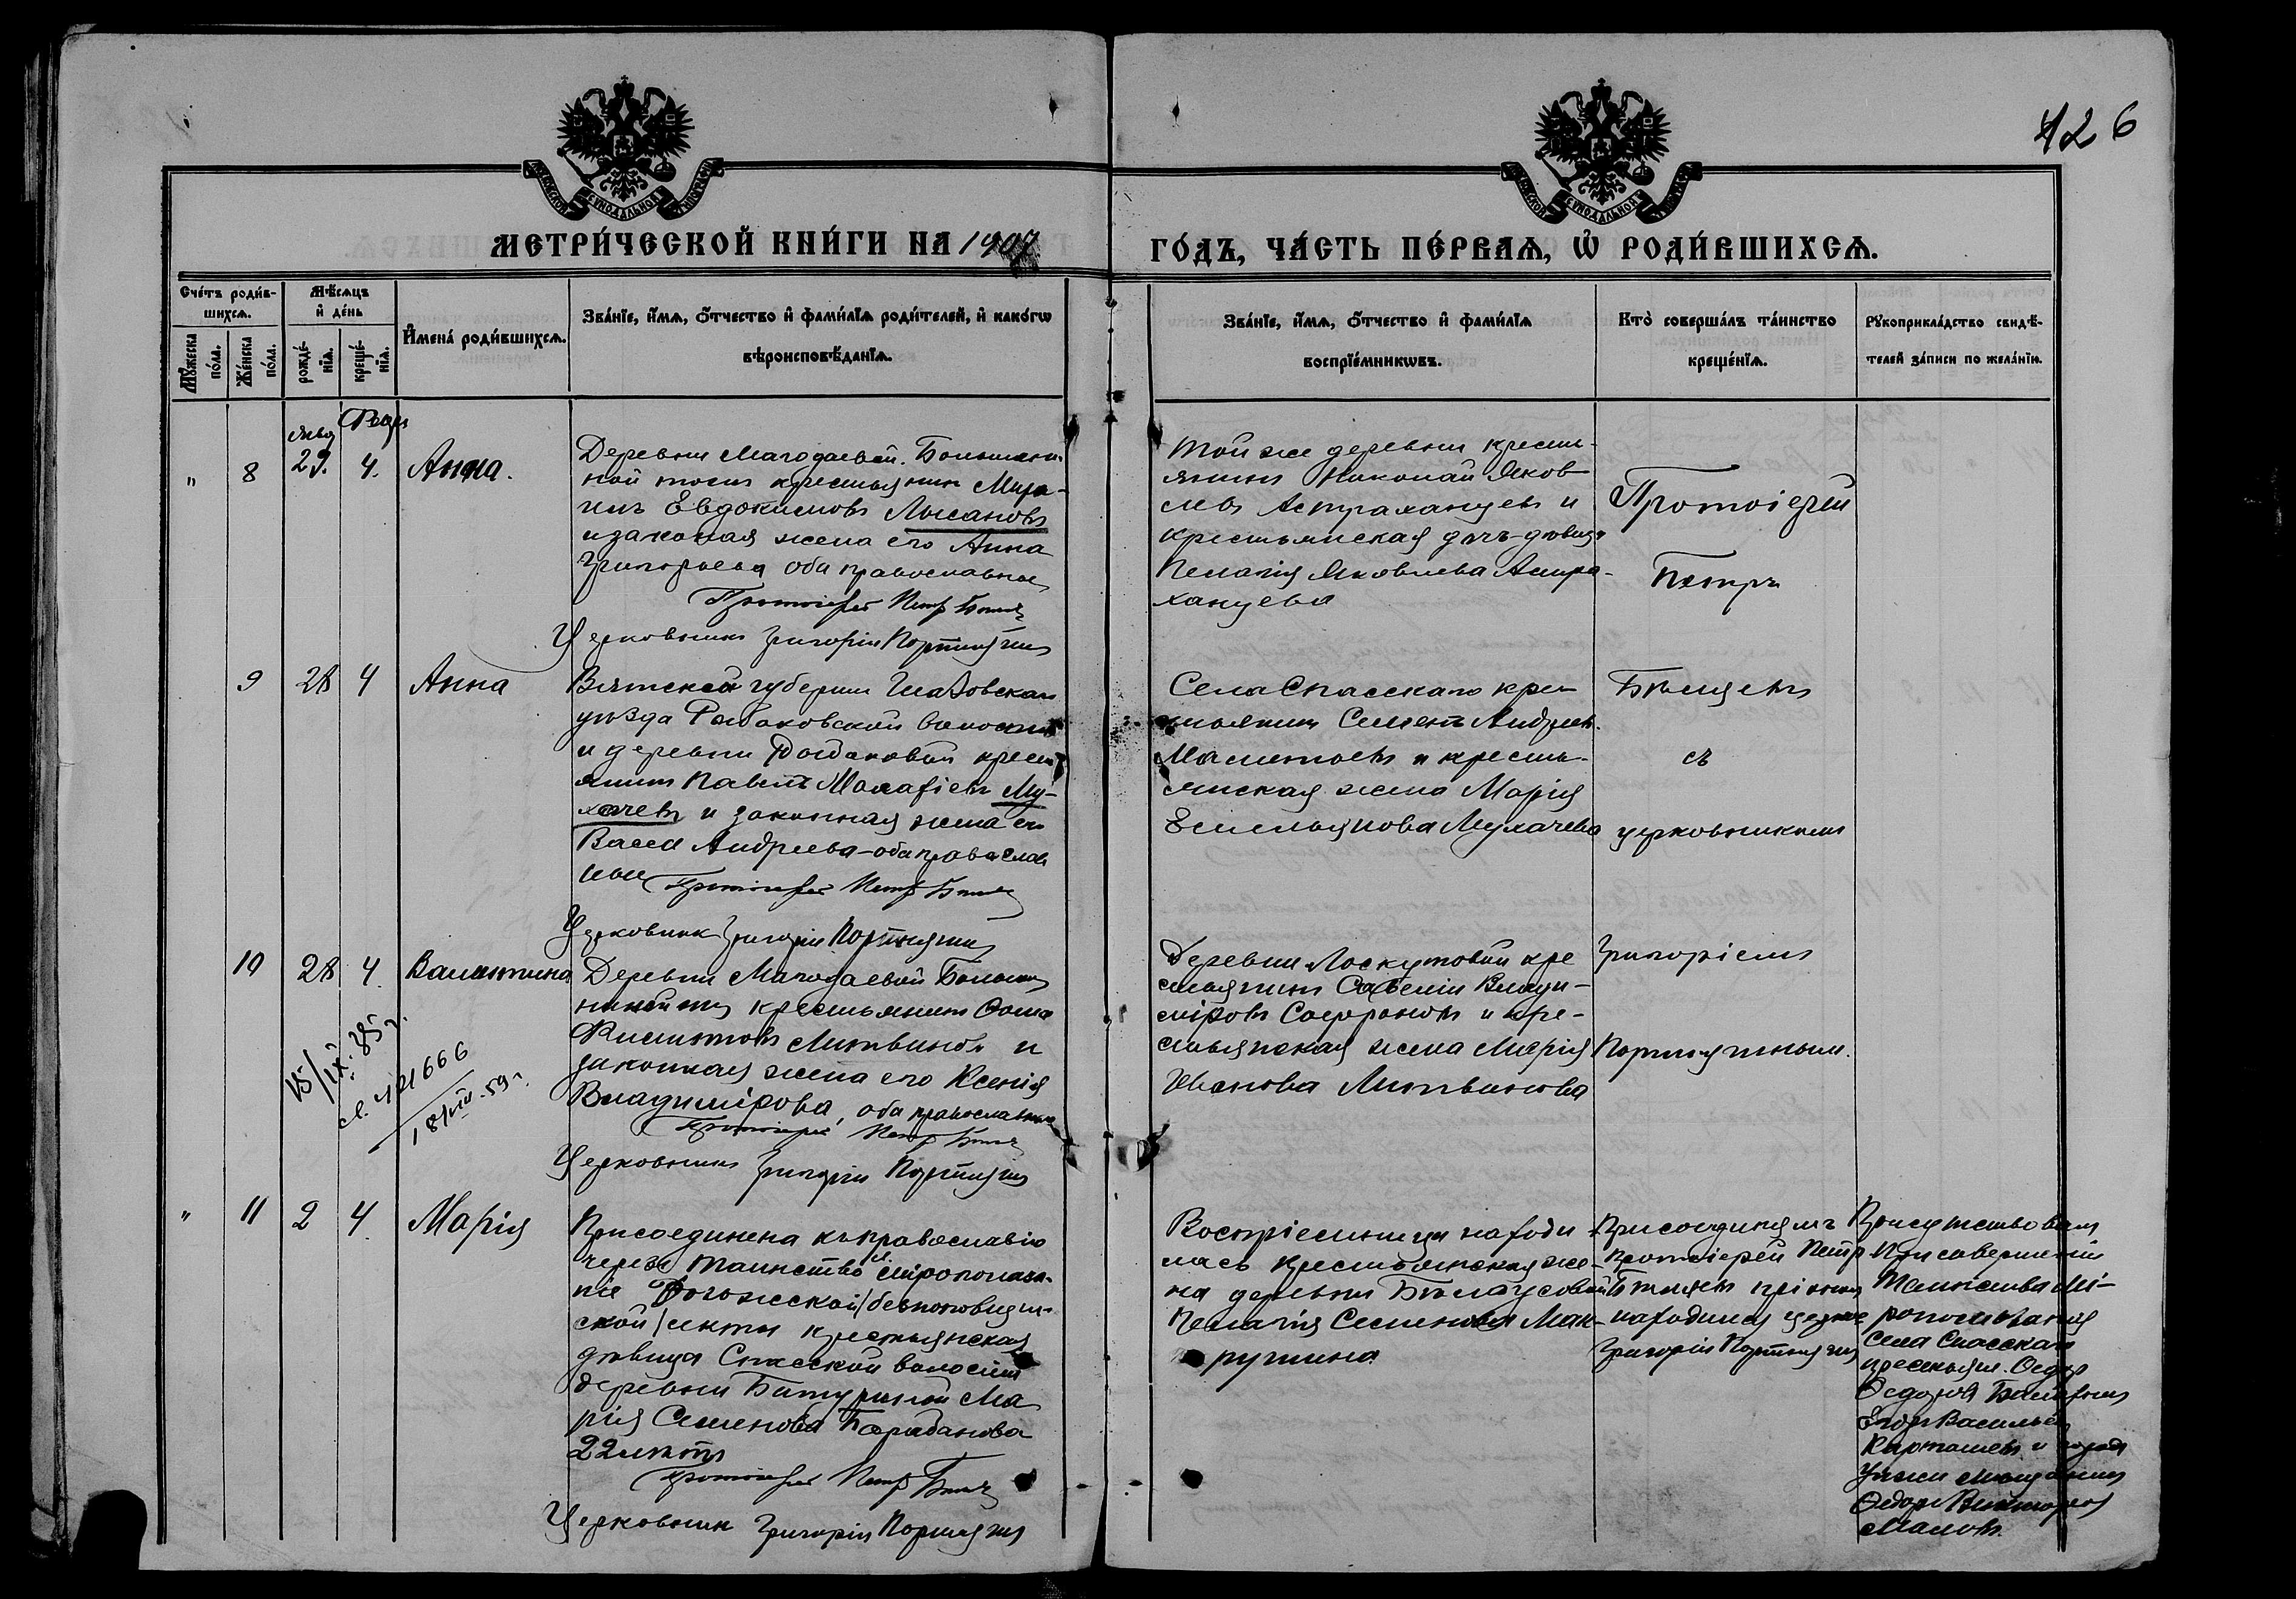 126
МЕТРИ́ЧЕСКОЙ КНИ́ГИ НА 1907
ГО́ДЪ, ЧА́СТЬ ПЕ́РВАѦ, Ѡ҆ РОДИ́ВШИХСѦ.
Сче́тъ роди́в-
шихсѧ.
Мꙋ́жеска по́ла.
Же́нска по́ла.
Мѣ́сѧцъ
и҆ де́нь
рожде́-
нїѧ.
креще́-
нїѧ.
И҆мена̀ роди́вшихсѧ.
Зва́нїе, и҆́мѧ, ѻ҆́тчество и҆ фами́лїѧ роди́телей, и҆ како́гѡ
вѣроисповѣ́данїѧ.
Зва́нїе, и҆́мѧ, ѻ҆́тчество и҆ фами́лїѧ
воспрїе́мникѡвъ.
Кто̀ соверша́лъ та́инство
креще́нїѧ.
Рꙋкоприкла́дство свидѣ́-
телей за́писи по жела́нїю.
" 8 29. 4. Анна.
Деревни Магодаевой.
крестьянин
Евдокимовъ Лысановъ
и законая жена его Анна
Григорьева оба православные
Протоіерей Петръ
Церковникъ Григорій Портнягин
Той же деревни кресть-
янинъ Николай Яков-
левъ Астраханцевъ и
крестьянская дочь-девица
Пелагія Яковлева Астра-
ханцева
Протоіерей
Петръ
9 28 4 Анна
Вятской губерніи Глазовскаго
уѣзда волости
и деревни крест
янинъ Павелъ Малафіевъ Му-
хачевъ и законная жена его
Васса Андреева-оба православ
ные Протоіерей Петръ
Церковник Григорій Портнягин
Села Спасскаго крес
тьянинъ Семенъ Андреевъ
и кресть-
янская жена Марія
Емельянова Мухачева
съ
церковникомъ
10 28 4. Валентина
Деревни Магодаевой
крестьянинъ Фома
Филиповъ Литвиновъ и
законная жена его Ксенія
Владимірова, оба православные
Протоіерей Петръ
Церковникъ Григорій Портнягин
15/IX. 35 г.
421666
18/VIII-59 г.
Деревни Лоскутовой кре
стьянинъ Савелій Влади-
міровъ Сафроновъ и кре-
стьянская жена Марія
Иванова Литвинова
Григоріемъ
Портнягинымъ.
" 11 2 4. Марія
Присоединена къ православію
черезъ таинство св. миропомаза-
ніе
ской/секты крестьянская
девица Спасской волости
деревни Батуриной Ма
рія Семенова Барабанова
22 лѣтъ
Протоіерей Петръ
Церковник Григорій Портнягин
Воспріемницей находи
лась крестьянская же-
на деревни Бѣлоусовой
Пелагія Семенова Мак-
рушина
Присоединялъ
протоіерей Петръ
при немъ
находился церков
Григорій Портнягин
Присутствовали
при совершеніи
Таинства Мѵ-
ропомазанія
села Спасскаго
крестьян. Федор
Федоров
Егор Васильев
Карташевъ и города
Федор Викторов
Маловъ.